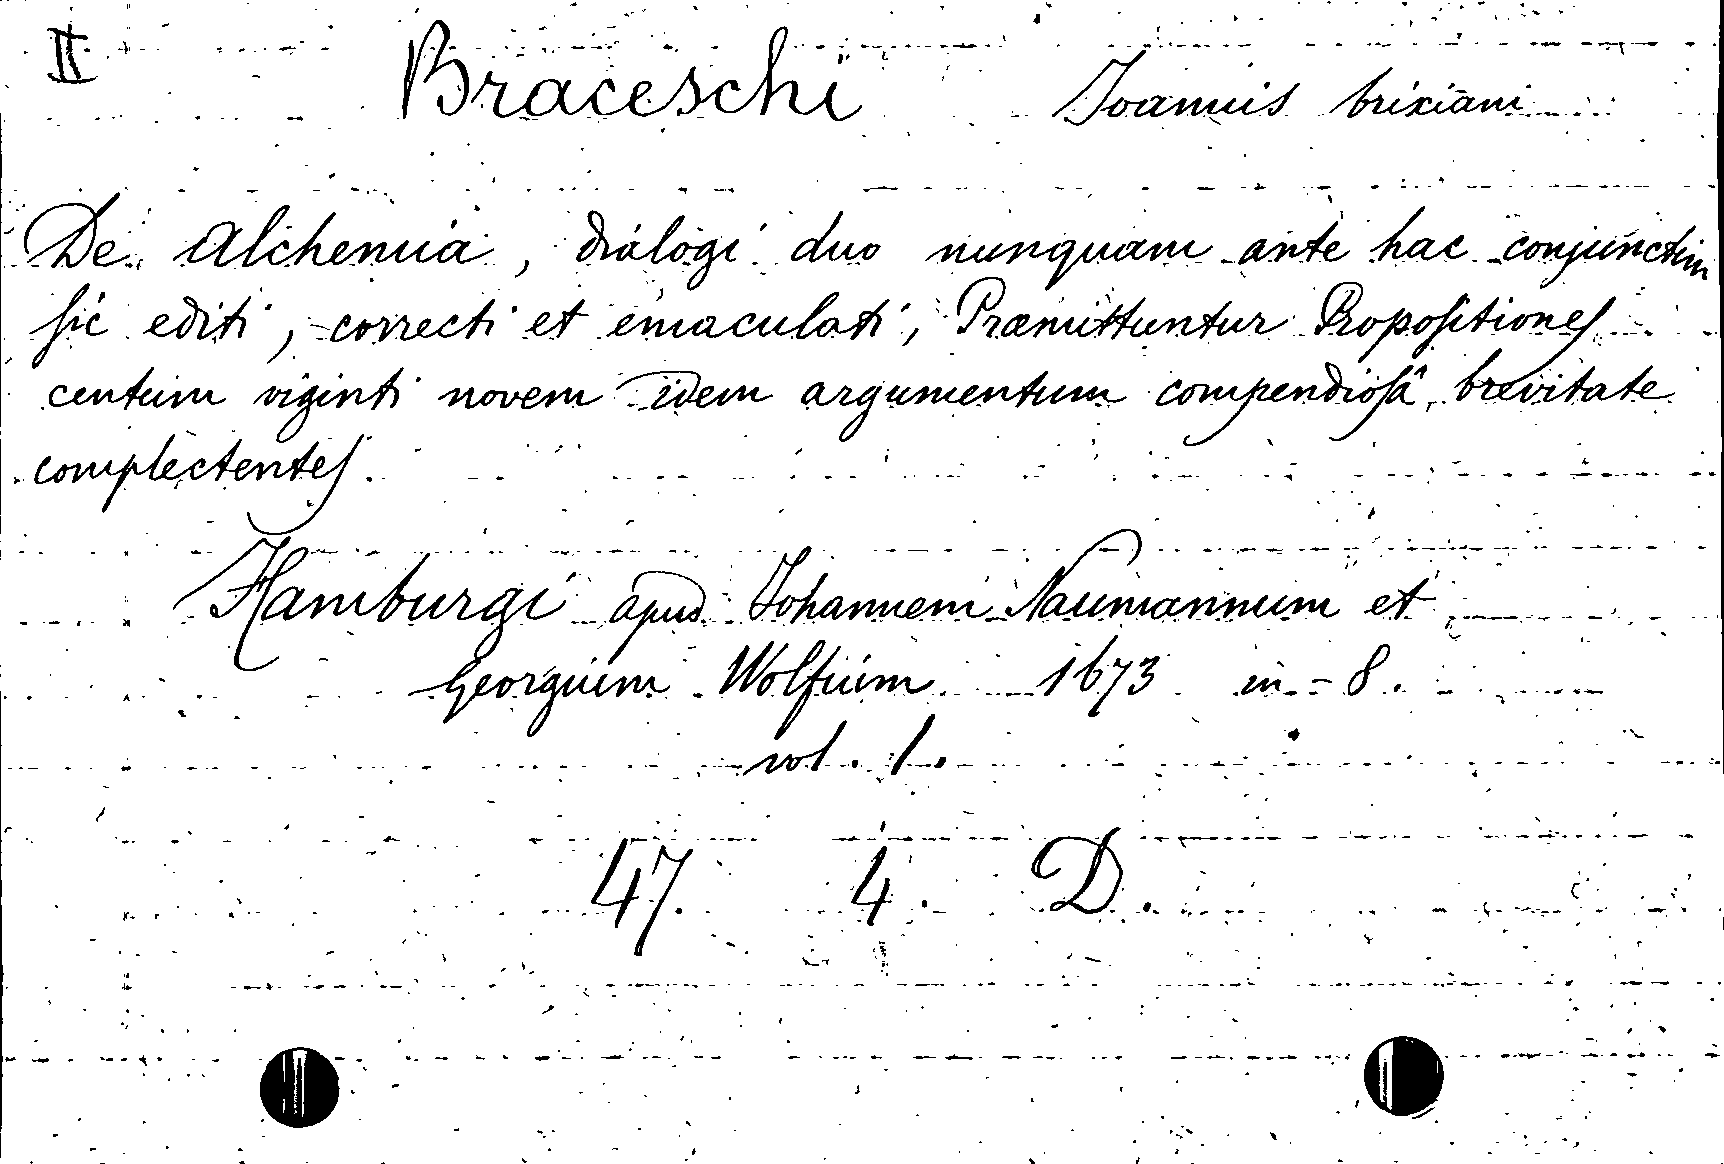 II Braceschi Joannis brixiani
De Alchemia, dialogi duo nunquam ante hac conjunctim
ſic editi, correcti et emaculati, Præmittuntur Propoſitioneſ
centum viginti novem idem argumentum compendioſâ brevitate
complectenteſ.
Hamburgi apud Johannem Naumannum et
Georgium Wolfium 1673 in-8.
vol. 1.
47. 4. D.